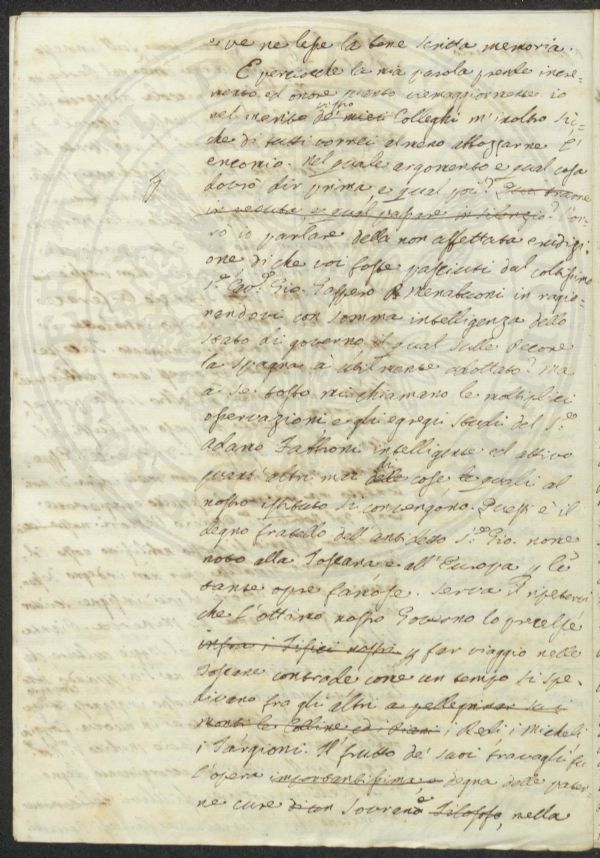 e ve ne lesse la bene scritta memoria.
E perciocchè la mia parola prende incre=
mento ed onore
nel merito de' miei vostro Colleghi m'inoltro sic=
che di tutti vorrei almeno abbozzarne l'
encomio. Nel quale argomento e qual cosa
dovrò dir prima e qual poi?
in seduta e qual passare in silenzio?
rò io parlare della non affettata erudizi=
one di che voi foste pasciuti dal coltissimo
S.r Gio. Gassero Menabuoni in ragio=
nandovi con somma intelligenza dello
stato di governo il qual delle Pecore
la Spagna à utilmente adottato? Ma
a se tosto mi chiamano le moltiplici
osservazioni e gli egregi studi del S.r
Adamo Fabbroni intelligente ed attivo
quant'altri mai delle cose le quali al
nostro istituto si convengono. Questi è il
degno fratello dell'antidetto S.r Gio. noné
noto alla Toscana e all'Europa p le
tante opre famose. Serva il ripetervi
che l'ottimo nostro Governo lo prescelse
infra i Fisici nostri p far viaggio nelle
Toscane contrade come un tempo si spe=
divano fra gli altri a pellegrinar su i
monti le Colline ed i Piani, i Redi i Micheli
i Targioni. Il frutto de' suoi travagli fu
l'opera importantissima e degna delle pater=
ne cure di un Sovrano e Filosofo, nella